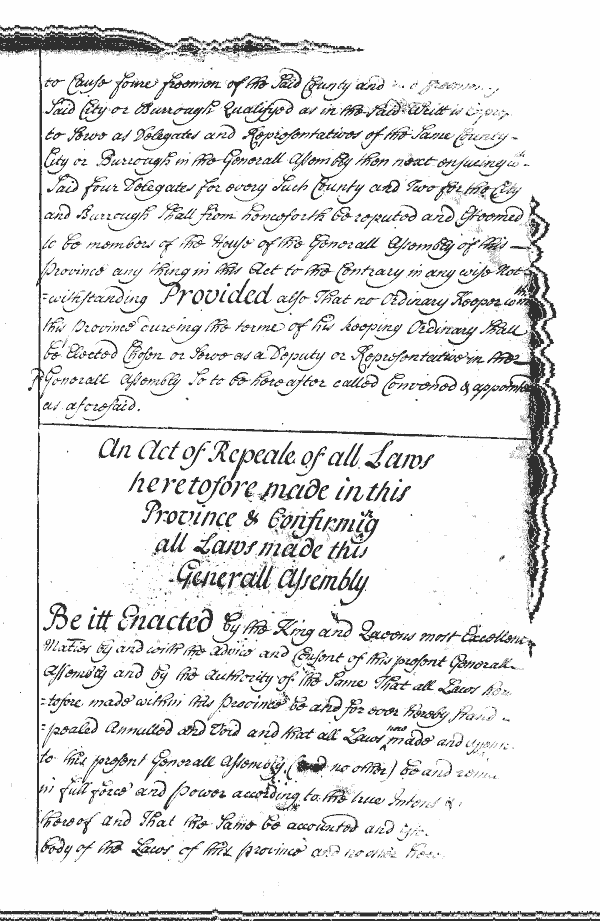 to Cause foure freemen of the Said County and
Said City or Burrough Qualifyed as in the Said Writt is
to Serve as Delegates and Representatives of the Same County
City or Burrough in the Generall Assembly then next ensueing
Said four Delegates for every Such County and Two for the City
and Burrough Shall from henceforth be reputed and Esteemed
to be members of the House of the Generall Assembly of this
Province any thing in this Act to the Contrary in any wise Not
=withstanding Provided also That no Ordinary Keeper
this Province dureing the terme of his keeping Ordinary Shall
be Elected Chosen or Serve as a Deputy or Representative in the
Generall Assembly So to be hereafter called Convened &
as aforesaid.
An Act of Repeale of all Laws
heretofore made in this
Province & Confirmig
all Laws made this
Generall Assembly
Be itt Enacted by the King and Queens most Excellent
Maties by and with the advice and Consent of this present Generall
Assembly and by the Authority of the Same That all Laws
=tofore made within this Province be and for ever hereby Stand
=pealed Annulled and Void and that all Laws now made and
to this present Generall Assembly (and no other) be and
in full force and power according to the true Intent &
thereof and That the Same be accounted and
body of the Laws of this Province and no other